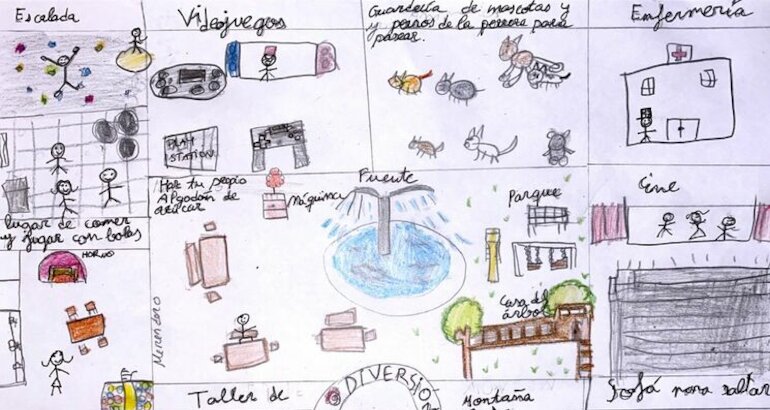 Escalada
Videojuegos
Guardería de mascotas y
y perros de la perrera para
pasear.
Enfermería
PLAY
STATION
Haz tu propio
Algodón de
azúcar
Máquina
Fuente
Parque
Cine
lugar de comer
y jugar con bolas
HORNO
Merendero
Casa del
árbol
Taller de
DIVERSIÓ
Montaña
Sofá para saltar